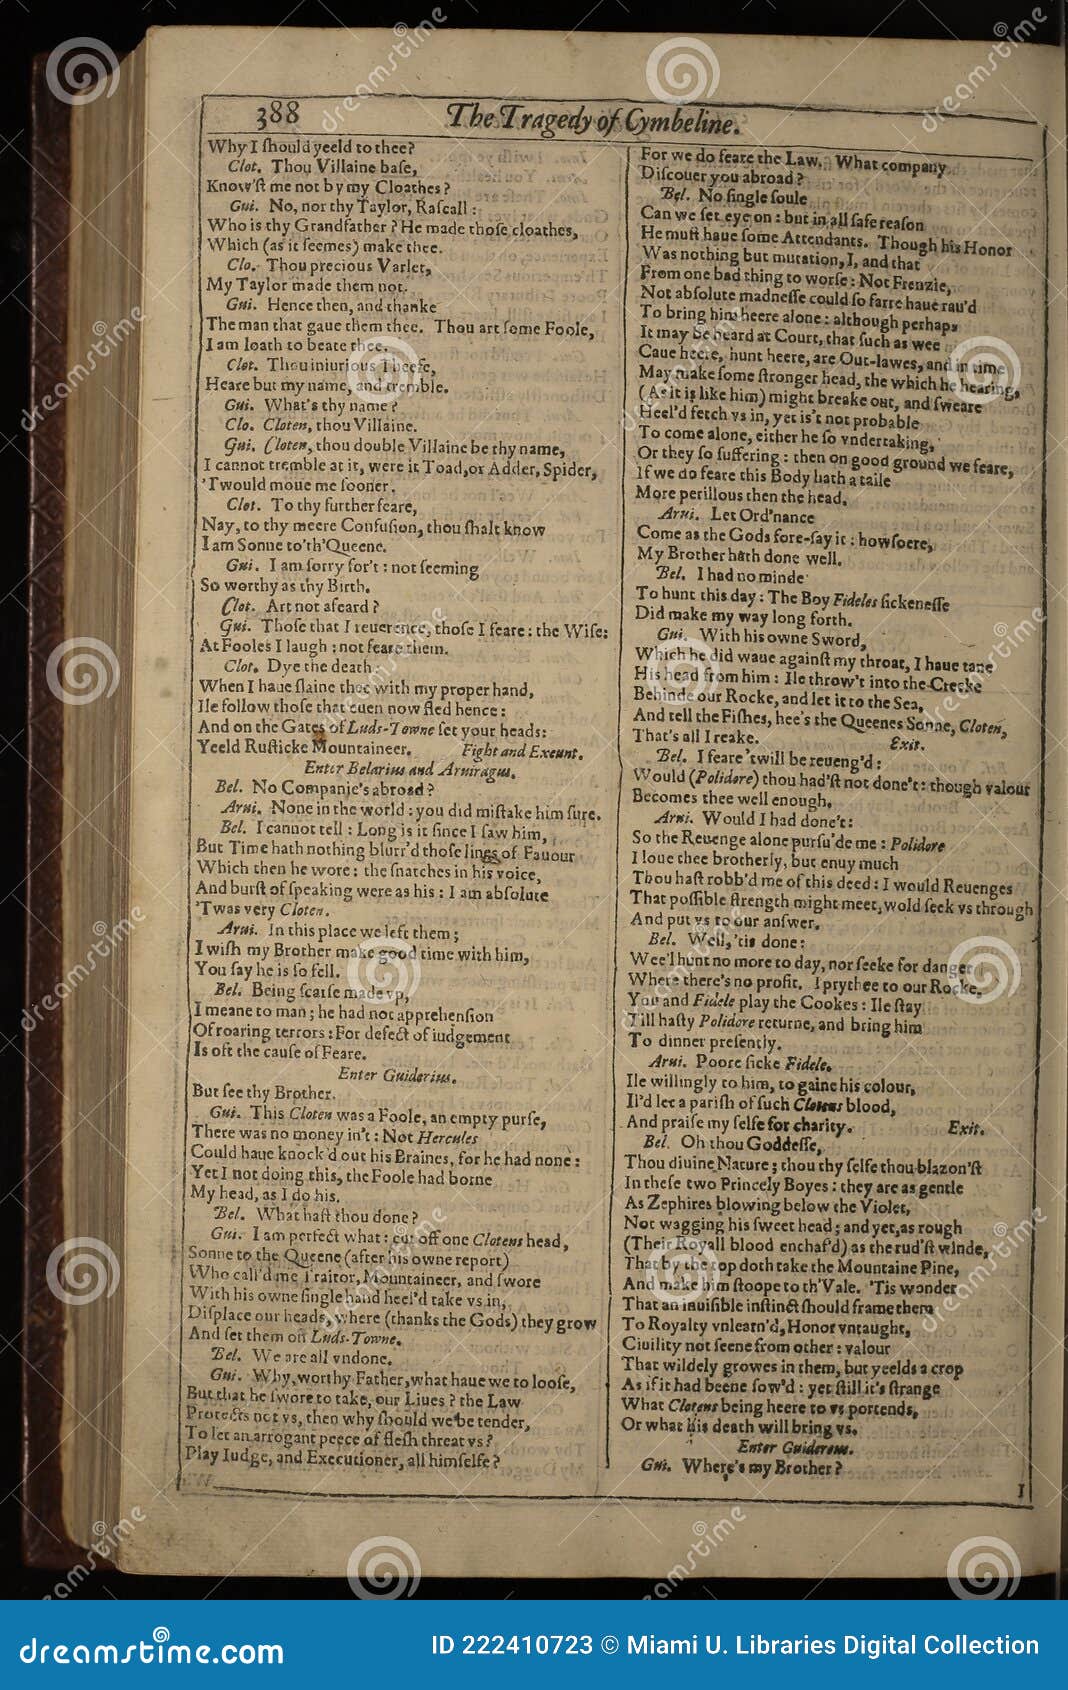 388
The Tragedy of Cymbeline.
Why I ſhould yeeld to thee?
Clot. Thou Villaine baſe,
Know'ſt me not by my Cloathes?
Gui. No, nor thy Taylor, Raſcall:
Who is thy Grandfather? He made thoſe cloathes,
Which (as it ſeemes) make thee.
Clo. Thou precious Varlet,
My Taylor made them not.
Gui. Hence then, and thanke
The man that gaue them thee. Thou art ſome Foole,
I am loath to beate thee.
Clot. Thou iniurious Theefe,
Heare but my name, and tremble.
Gui. What's thy name?
Clo. Cloten, thou Villaine.
Gui. Cloten, thou double Villaine be thy name,
I cannot tremble at it, were it Toad, or Adder, Spider,
'Twould moue me ſooner.
Clot. To thy further feare,
Nay, to thy meere Confuſion, thou ſhalt know
I am Sonne to'th'Queene.
Gui. I am ſorry for't: not ſeeming
So worthy as thy Birth.
Clot. Art not afeard?
Gui. Thoſe that I reuerence, thoſe I feare: the Wiſe:
At Fooles I laugh: not feare them.
Clot. Dye the death:
When I haue ſlaine thee with my proper hand,
Ile follow thoſe that euen now fled hence:
And on the Gates of Luds-Towne ſet your heads:
Yeeld Ruſticke Mountaineer. Fight and Exeunt.
Enter Belarius and Aruiragus.
Bel. No Companie's abroad?
Arui. None in the world: you did miſtake him ſure.
Bel. I cannot tell: Long is it ſince I ſaw him,
But Time hath nothing blurr'd thoſe lines of Fauour
Which then he wore: the ſnatches in his voice,
And burſt of ſpeaking were as his: I am abſolute
'Twas very Cloten.
Arui. In this place we left them;
I wiſh my Brother make good time with him,
You ſay he is ſo fell.
Bel. Being ſcarſe made vp,
I meane to man; he had not apprehenſion
Of roaring terrors: For defect of iudgement
Is oft the cauſe of Feare.
Enter Guiderius.
But ſee thy Brother.
Gui. This Cloten was a Foole, an empty purſe,
There was no money in't: Not Hercules
Could haue knock'd out his Braines, for he had none:
Yet I not doing this, the Foole had borne
My head, as I do his.
Bel. What haſt thou done?
Gui. I am perfect what: cut off one Clotens head,
Sonne to the Queene (after his owne report)
Who call'd me Traitor, Mountaineer, and ſwore
With his owne ſingle hand heel'd take vs in,
Diſplace our heads, where (thanks the Gods) they grow
And ſet them on Luds-Towne.
Bel. We are all vndone.
Gui. Why, worthy Father, what haue we to looſe,
But that he ſwore to take, our Liues? the Law
Protects not vs, then why ſhould we be tender,
To let an arrogant peece of fleſh threat vs?
Play Iudge, and Executioner, all himſelfe?
For we do feare the Law. What company
Diſcouer you abroad?
Bel. No ſingle ſoule
Can we ſet eye on: but in all ſafe reaſon
He muſt haue ſome Attendants. Though his Honor
Was nothing but mutation, I, and that
From one bad thing to worſe: Not Frenzie,
Not abſolute madneſſe could ſo farre haue rau'd
To bring him heere alone: although perhaps
It may be heard at Court, that ſuch as wee
Caue heere, hunt heere, are Out-lawes, and in time
May make ſome ſtronger head, the which he hearing,
(As it is like him) might breake out, and ſweare
Heel'd fetch vs in, yet is't not probable
To come alone, either he ſo vndertaking,
Or they ſo ſuffering: then on good ground we feare,
If we do feare this Body hath a taile
More perillous then the head.
Arui. Let Ord'nance
Come as the Gods fore-ſay it: howſoere,
My Brother hath done well.
Bel. I had no minde
To hunt this day: The Boy Fideles ſickeneſſe
Did make my way long forth.
Gui. With his owne Sword,
Which he did waue againſt my throat, I haue tane
His head from him: Ile throw't into the Creeke
Behinde our Rocke, and let it to the Sea,
And tell the Fiſhes, hee's the Queenes Sonne, Cloten,
That's all I reake. Exit.
Bel. I feare 'twill be reueng'd:
Would (Polidore) thou had'ſt not done't: though valour
Becomes thee well enough.
Arui. Would I had done't:
So the Reuenge alone purſu'de me: Polidore
I loue thee brotherly, but enuy much
Thou haſt robb'd me of this deed: I would Reuenges
That poſſible ſtrength might meet, wold ſeek vs through
And put vs to our anſwer.
Bel. Well, 'tis done:
Wee'l hunt no more to day, nor ſeeke for danger
Where there's no profit. I prythee to our Rocke,
You and Fidele play the Cookes: Ile ſtay
Till haſty Polidore returne, and bring him
To dinner preſently.
Arui. Poore ſicke Fidele.
Ile willingly to him, to gaine his colour,
Il'd let a pariſh of ſuch Clotens blood,
And praiſe my ſelfe for charity. Exit.
Bel. Oh thou Goddeſſe,
Thou diuine Nature; thou thy ſelfe thou blazon'ſt
In theſe two Princely Boyes: they are as gentle
As Zephires blowing below the Violet,
Not wagging his ſweet head; and yet, as rough
(Their Royall blood enchaf'd) as the rud'ſt winde,
That by the top doth take the Mountaine Pine,
And make him ſtoope to th'Vale. 'Tis wonder
That an inuiſible inſtinct ſhould frame them
To Royalty vnlearn'd, Honor vntaught,
Ciuility not ſeene from other: valour
That wildely growes in them, but yeelds a crop
As if it had beene ſow'd: yet ſtill it's ſtrange
What Clotens being heere to vs portends,
Or what his death will bring vs.
Enter Guiderius.
Gui. Where's my Brother?
I
dreamstime.com
ID 222410723 © Miami U. Libraries Digital Collection